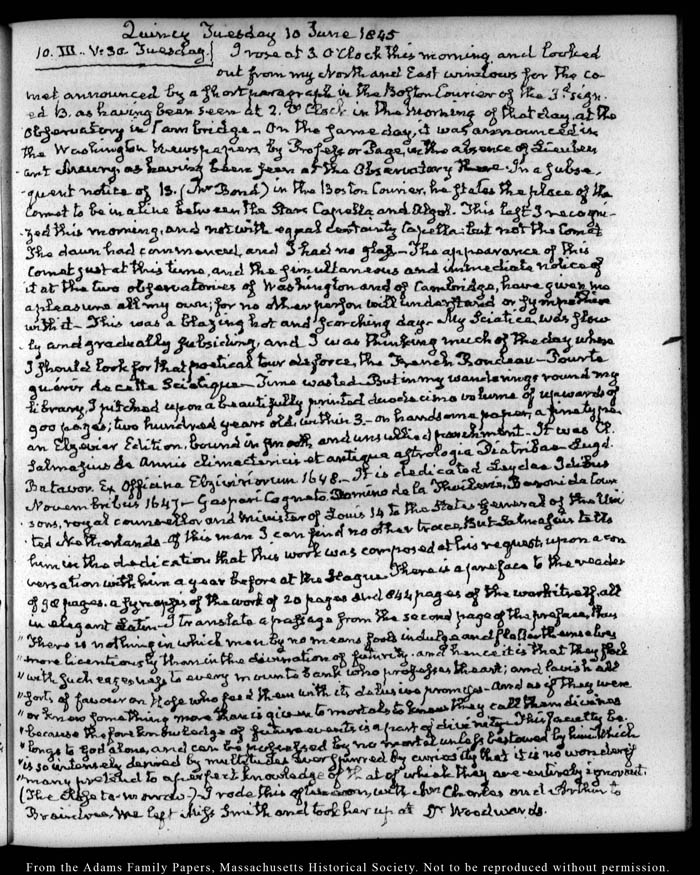 Quincy Tuesday 10 June 1845
10. III.. V:30. Tuesday.} I rose at 3. O'Clock this morning and looked
out from my North and East windows for the co-
met announced by a short paragraph in the Boston Courier of the 3d. sign-
ed B. as having been seen at 2. O'Clock in the morning of that day, at the
Observatory in Cambridge. On the same day, it was announced in
the Washington Newspapers, by Professor Page, in the absence of Lieuten-
ant Maury, as having been seen at the Observatory there. In a subse-
quent notice of B. (Mr Bond) in the Boston Courier, he states the place of the
Comet to be in a line between the Stars Capella and Algol. This last I recogni-
zed this morning, and not with equal certainty Capella: but not the Comet
The dawn had commenced, and I had no glass— The appearance of this
Comet just at this time, and the simultaneous and immediate notice of
it at the two observatories of Washington and of Cambridge, have given me
a pleasure all my own; for no other person will understand or sympathise
with it— This was a blazing hot and scorching day— My Sciatica was slow-
ly and gradually subsiding, and I was thinking much of the day where
I should look for that poetical tour de force, the French Rondeau— Pour te
guérir de cette Sciatique— Time wasted. But in my wanderings round my
library, I pitched upon a beautifully printed duodecimo volume of upwards of
900 pages; two hundred years old, within 3— on handsome paper, a fine type
an Elzevier Edition, bound in smooth and unsullied parchment— It was Cl.
Salmasius de Annis climactericis et antiqua astrologia Diatribae— Lugd.
Batavor. Ex Officina Elziviriorum 1648.— It is dedicated Leydae Idibus
Novembribus 1647— Gaspari Cognato Domino de la Thuilerie, Baroni de Cour
sons, royal counsellor and Minister of Louis 14 to the States General of the Uni-
ted Netherlands— Of this man I can find no other trace, But Salmasius tells
him in the dedication that this work was composed at his request, upon a con-
versation with him a year before at the Hague. There is a preface to the reader
of 92 pages. a synopsis of the work of 20 pages and 844 pages of the work itself, all
in elegant Latin— I translate a passage from the second page of the preface, thus
"There is nothing in which men by no means fools indulge and flatter themselves
"more licentiously than in the divination of futurity. and hence it is that they flock
"with such eagerness to every mountebank who professes the art; and lavish all
"sorts of favour on those who feed them with its delusive promises— And as if they were
"or knew something more than is given to mortals to know they call them divines
"because the foreknowledge of future events is a part of divinity. This faculty be-
"longs to God alone, and can be possessed by no mortal unless bestowed by him which
"is so intensely desired by multitudes overspurred by curiosity that it is no wonder if
"many pretend to a perfect knowledge of that of which they are entirely ignorant.
(The close to-morrow—) I rode this afternoon, with Mrs Charles and Arthur to
Braintree, We left Miss Smith and took her up at Dr Woodwards.
From the Adams Family Papers, Massachusetts Historical Society. Not to be reproduced without permission.